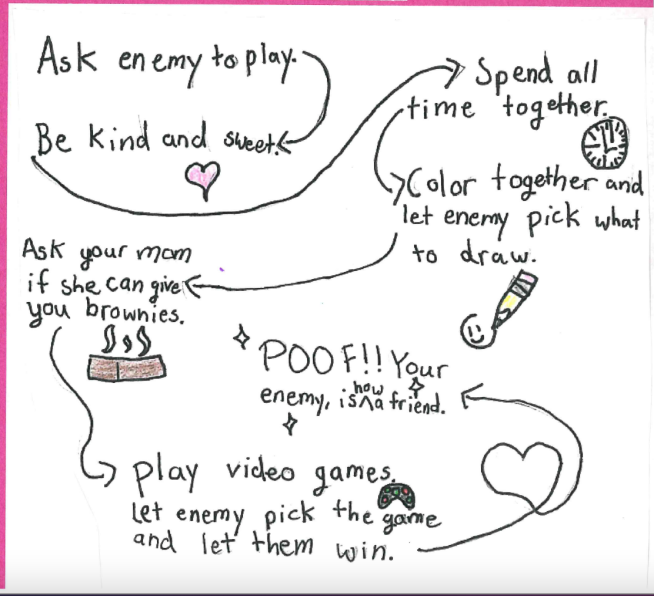 Ask enemy to play.
Be kind and sweet.
Spend all
time together.
Color together and
let enemy pick what
to draw.
Ask your mom
if she can give
you brownies.
play video games.
Let enemy pick the game
and let them win.
POOF!! Your
enemy, is how a friend.